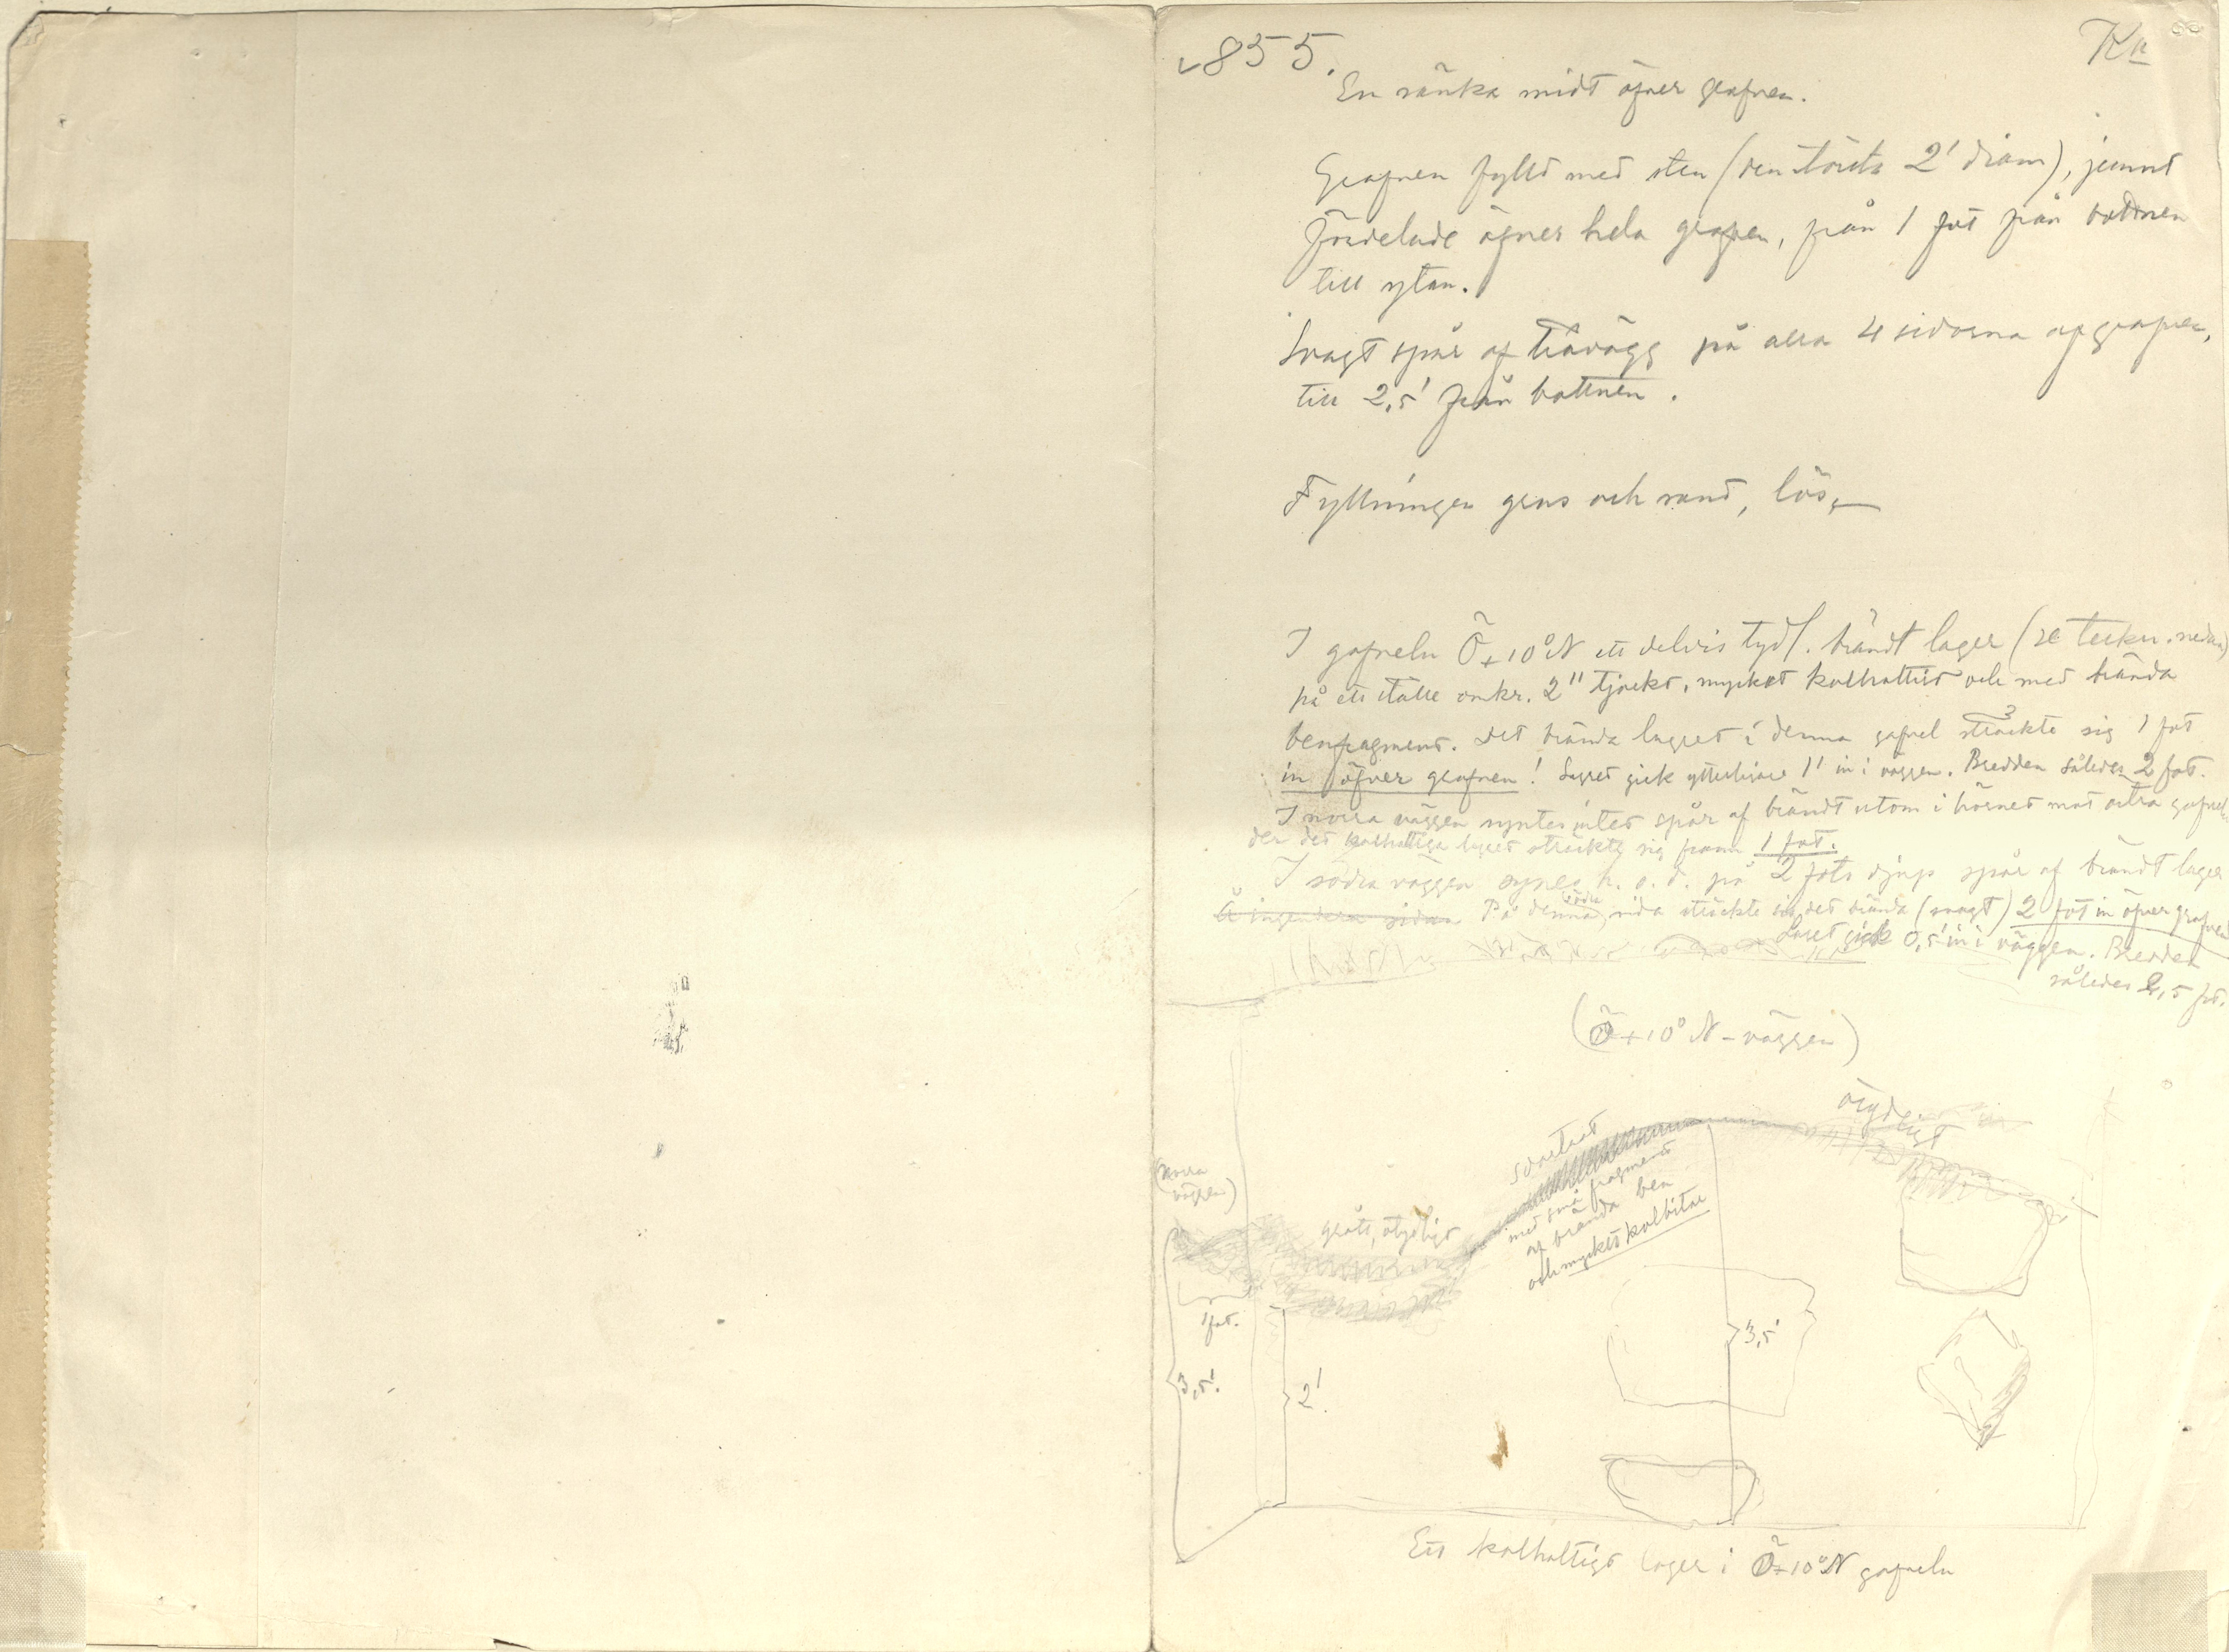 855.
Kk
En sänka midt öfver grafven.
Grafven fylld med sten (den största 2' diam), jemnt
fördelade öfver hela grafven, från 1 fot från bottnen
till ytan.
Svagt spår af trävägg på alla 4 sidorna af grafven,
till 2,5' från bottnen.
Fyllningen grus och sand, lös,
I gafveln Ö+10°N ett delvis tydl. brändt lager (se teckn. nedan)
på ett ställe omkr. 2" tjockt, mycket kolhaltigt och med brända
benfragment. Det brända lagret i denna gafvel sträckte sig 1 fot
in öfver grafven! Lagret gick ytterligare 1' in i väggen. Bredden således 2 fot.
I norra väggen syntes intet spår af brändt utom i hörnet mot östra gafveln
der det kolhaltiga lagret sträckte sig fram 1 fot.
I södra väggen synes n. o. d. på 2 fots djup spår af brändt lager
Å ingendera sidan På denna södra sida sträckte sig det brända (svagt) 2 fot in öfver grafven
Lagret gick 0,5' in i väggen. Bredden
således 2,5 fot.
(Ö+10°N-väggen)
otydligt
svartast
med små fragment
af brända ben
och mycket kolbitar
(Norra
väggen)
grått, otydligt
1 fot.
3,5'
3,5'.
2'.
Ett kolhaltigt lager i Ö+10°N gafveln